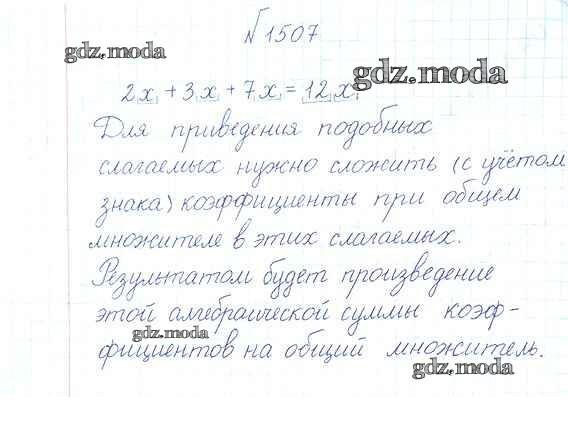 №1507
gdz.moda
gdz.moda
2x + 3x + 7x = 12x
Для приведения подобных
слагаемых нужно сложить (с учётом
знака) коэффициенты при общем
множителе в этих слагаемых.
Результатом будет произведение
этой алгебраической суммы коэф-
gdz.moda
фициентов на общий множитель.
gdz.moda